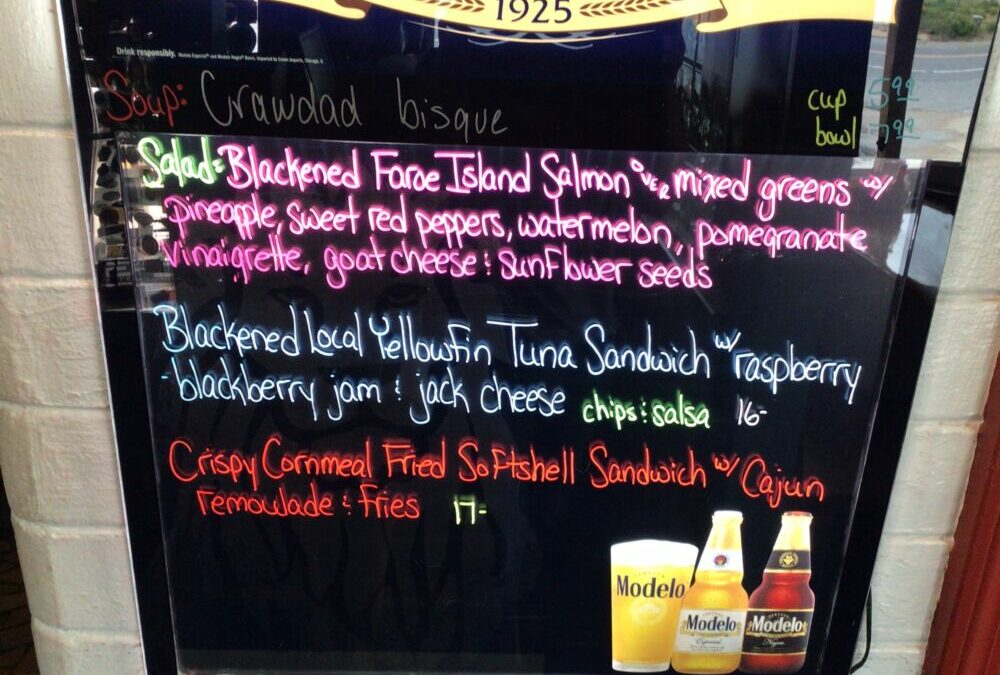 1925
Drink responsibly. Modelo Especial® and Modelo Negra® Beers. Imported by Crown Imports, Chicago, IL
Soup: Crawdad bisque
cup 5.99
bowl 7.99
Salad: Blackened Faroe Island Salmon over mixed greens w/
pineapple, sweet red peppers, watermelon, pomegranate
vinaigrette, goat cheese & sunflower seeds
Blackened Local Yellowfin Tuna Sandwich w/ raspberry
-blackberry jam & jack cheese chips & salsa 16-
Crispy Cornmeal Fried Softshell Sandwich w/ Cajun
remoulade & Fries 17-
Modelo
Modelo
Especial
Modelo
Negra